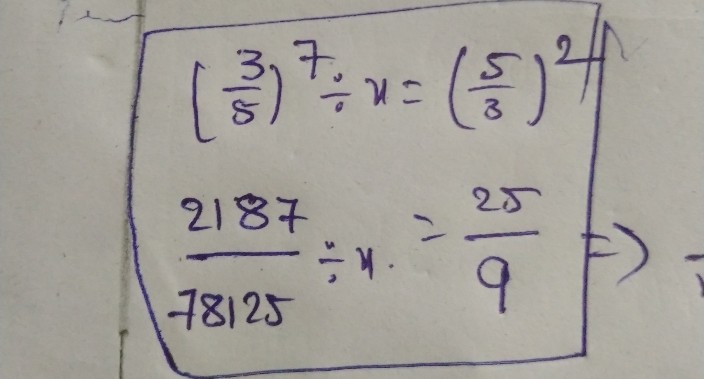 (3/5)^7 ÷ x = (5/3)^2
2187/78125 ÷ x. = 25/9 =>